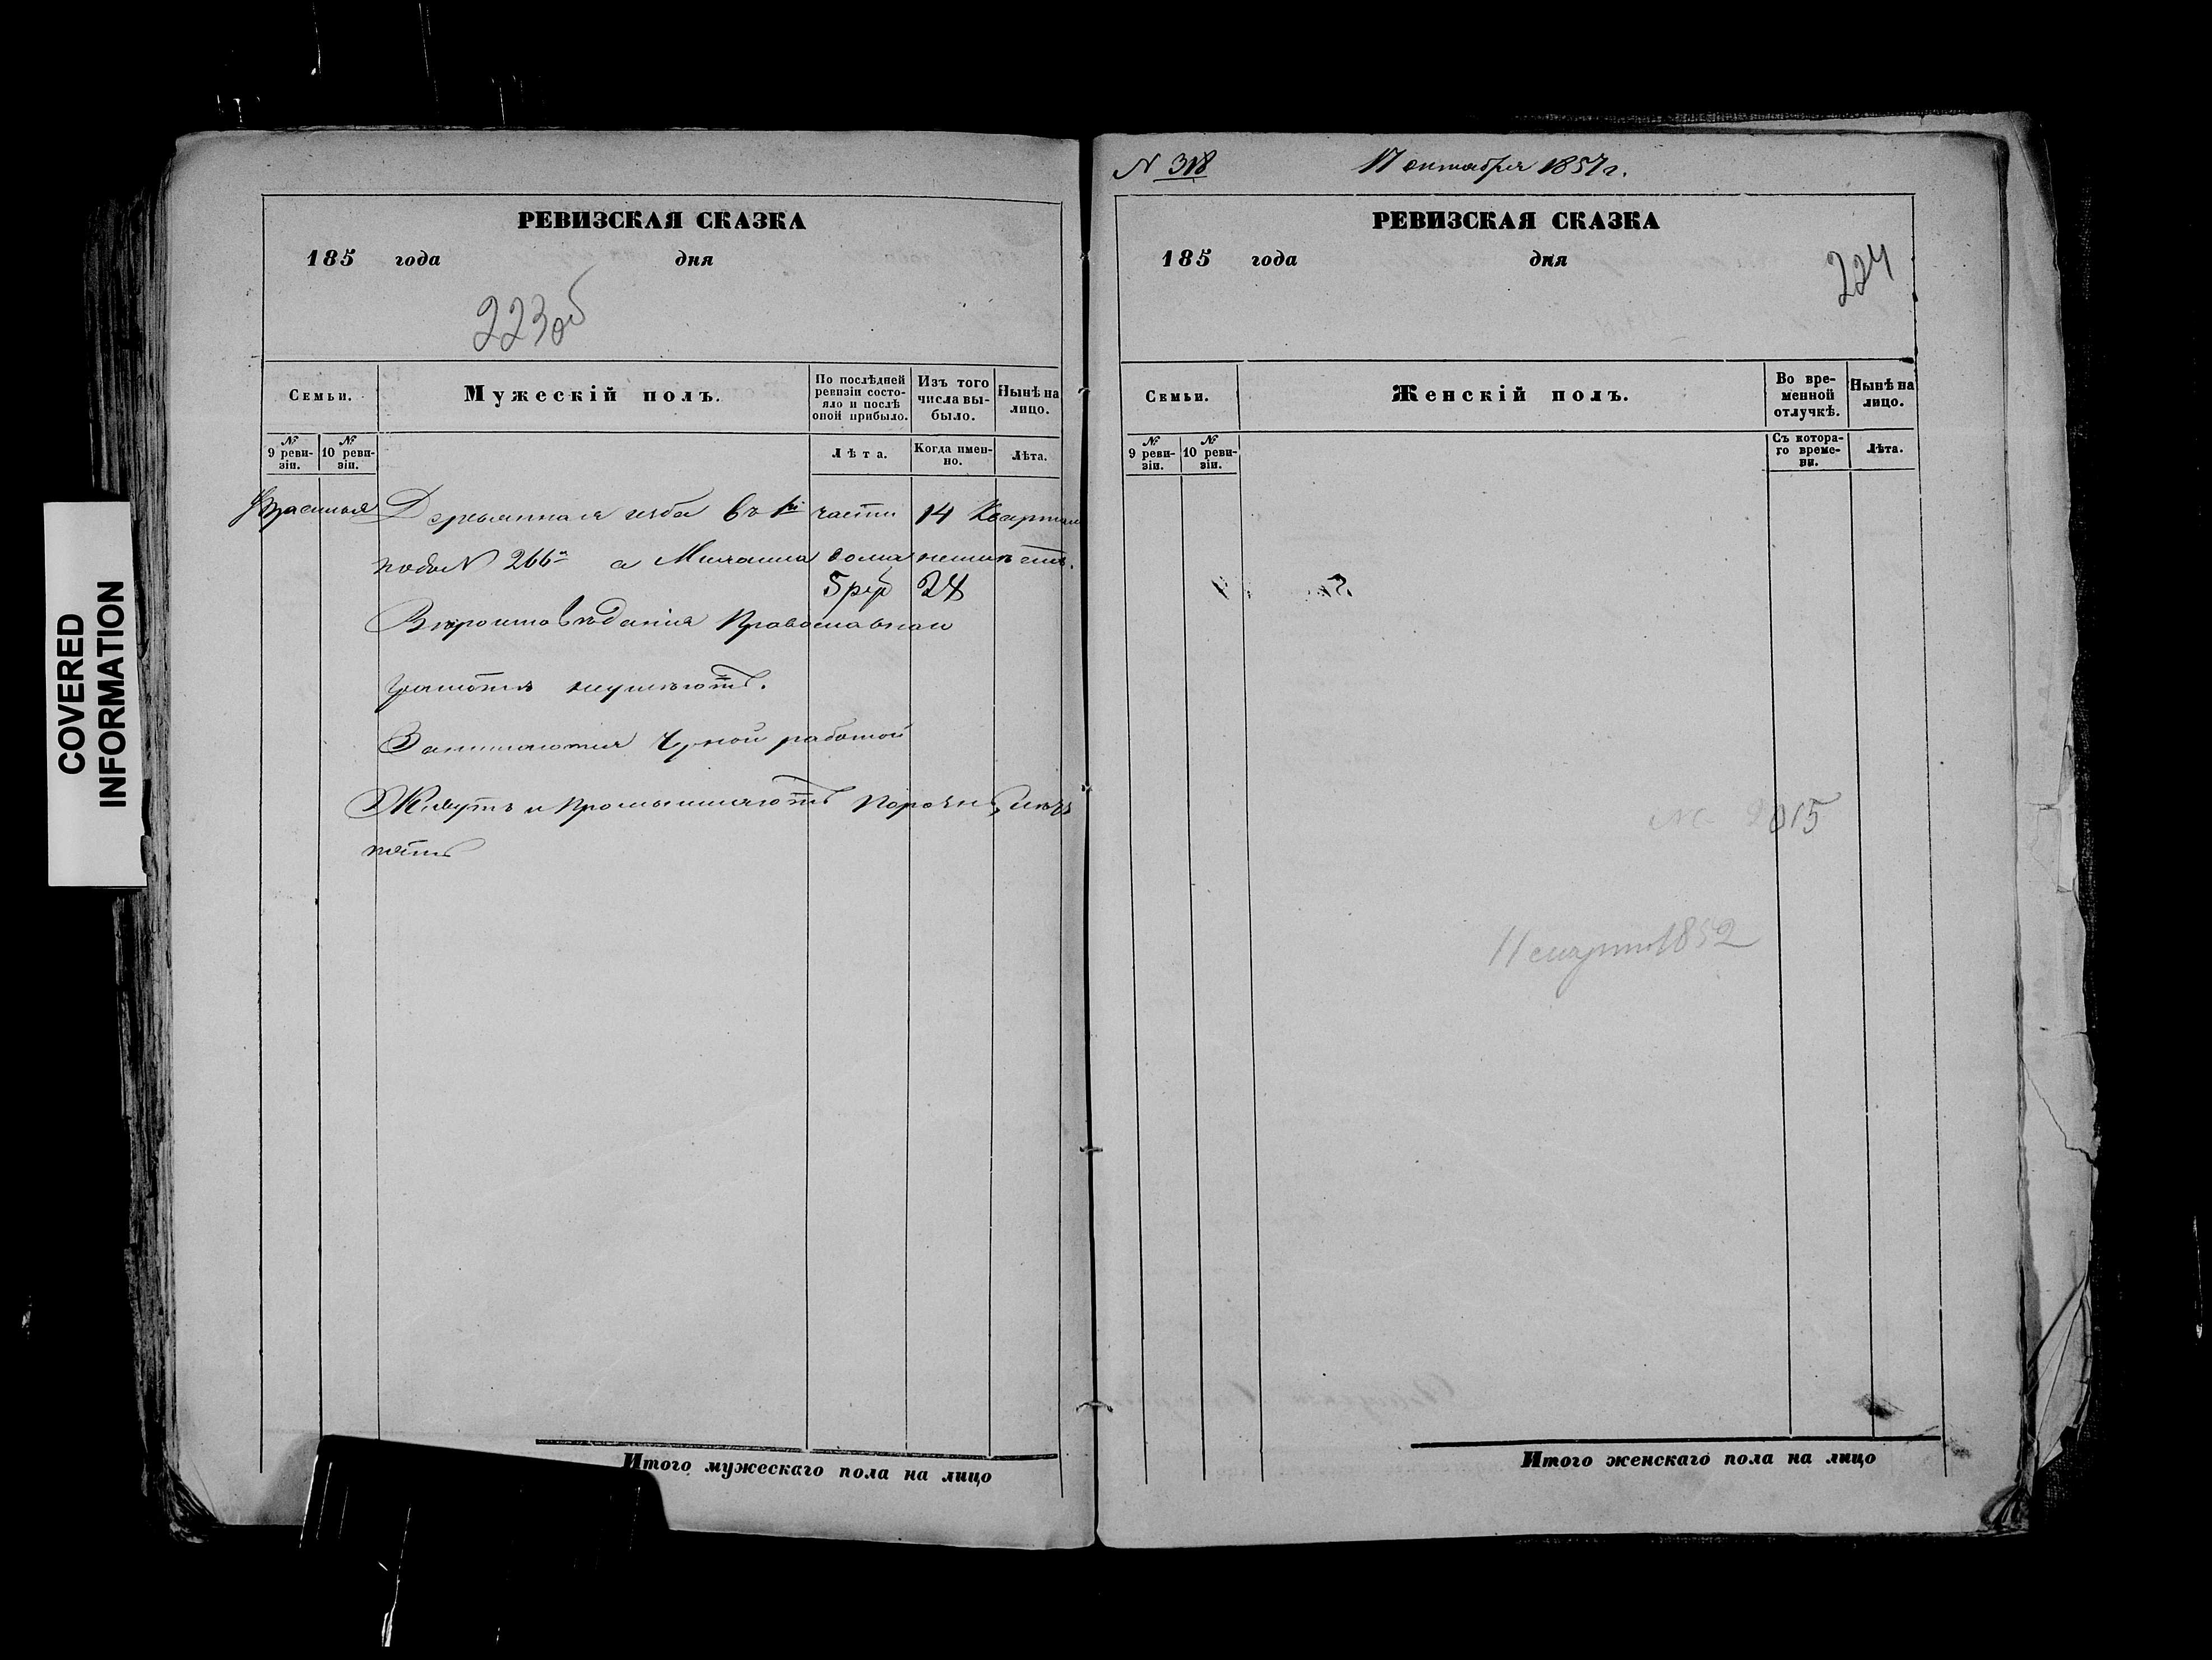 COVERED
INFORMATION
РЕВИЗСКАЯ СКАЗКА
185 года дня
223об
Семьи.
Мужескій полъ.
По послѣдней ревизіи состояло и послѣ оной прибыло.
Изъ того числа выбыло.
Нынѣ на лицо.
№ 9 ревизіи.
№ 10 ревизіи.
Лѣта.
Когда именно.
Лѣта.
Деревянная изба въ 1й части 14 Квартал
подъ N 266м а дома неимѣетъ.
5 руб 24
Вѣроисповѣданія Православнаго
Грамотѣ неумѣютъ.
Занимаются Черной работой
Живутъ и Промышляютъ
Итого мужескаго пола на лицо
N 318 17 октября 1857 г.
РЕВИЗСКАЯ СКАЗКА
185 года дня
224
Семьи.
Женскій полъ.
Во временной отлучкѣ.
Нынѣ на лицо.
№ 9 ревизіи.
№ 10 ревизіи.
Съ котораго времени.
Лѣта.
2015
1852
Итого женскаго пола на лицо